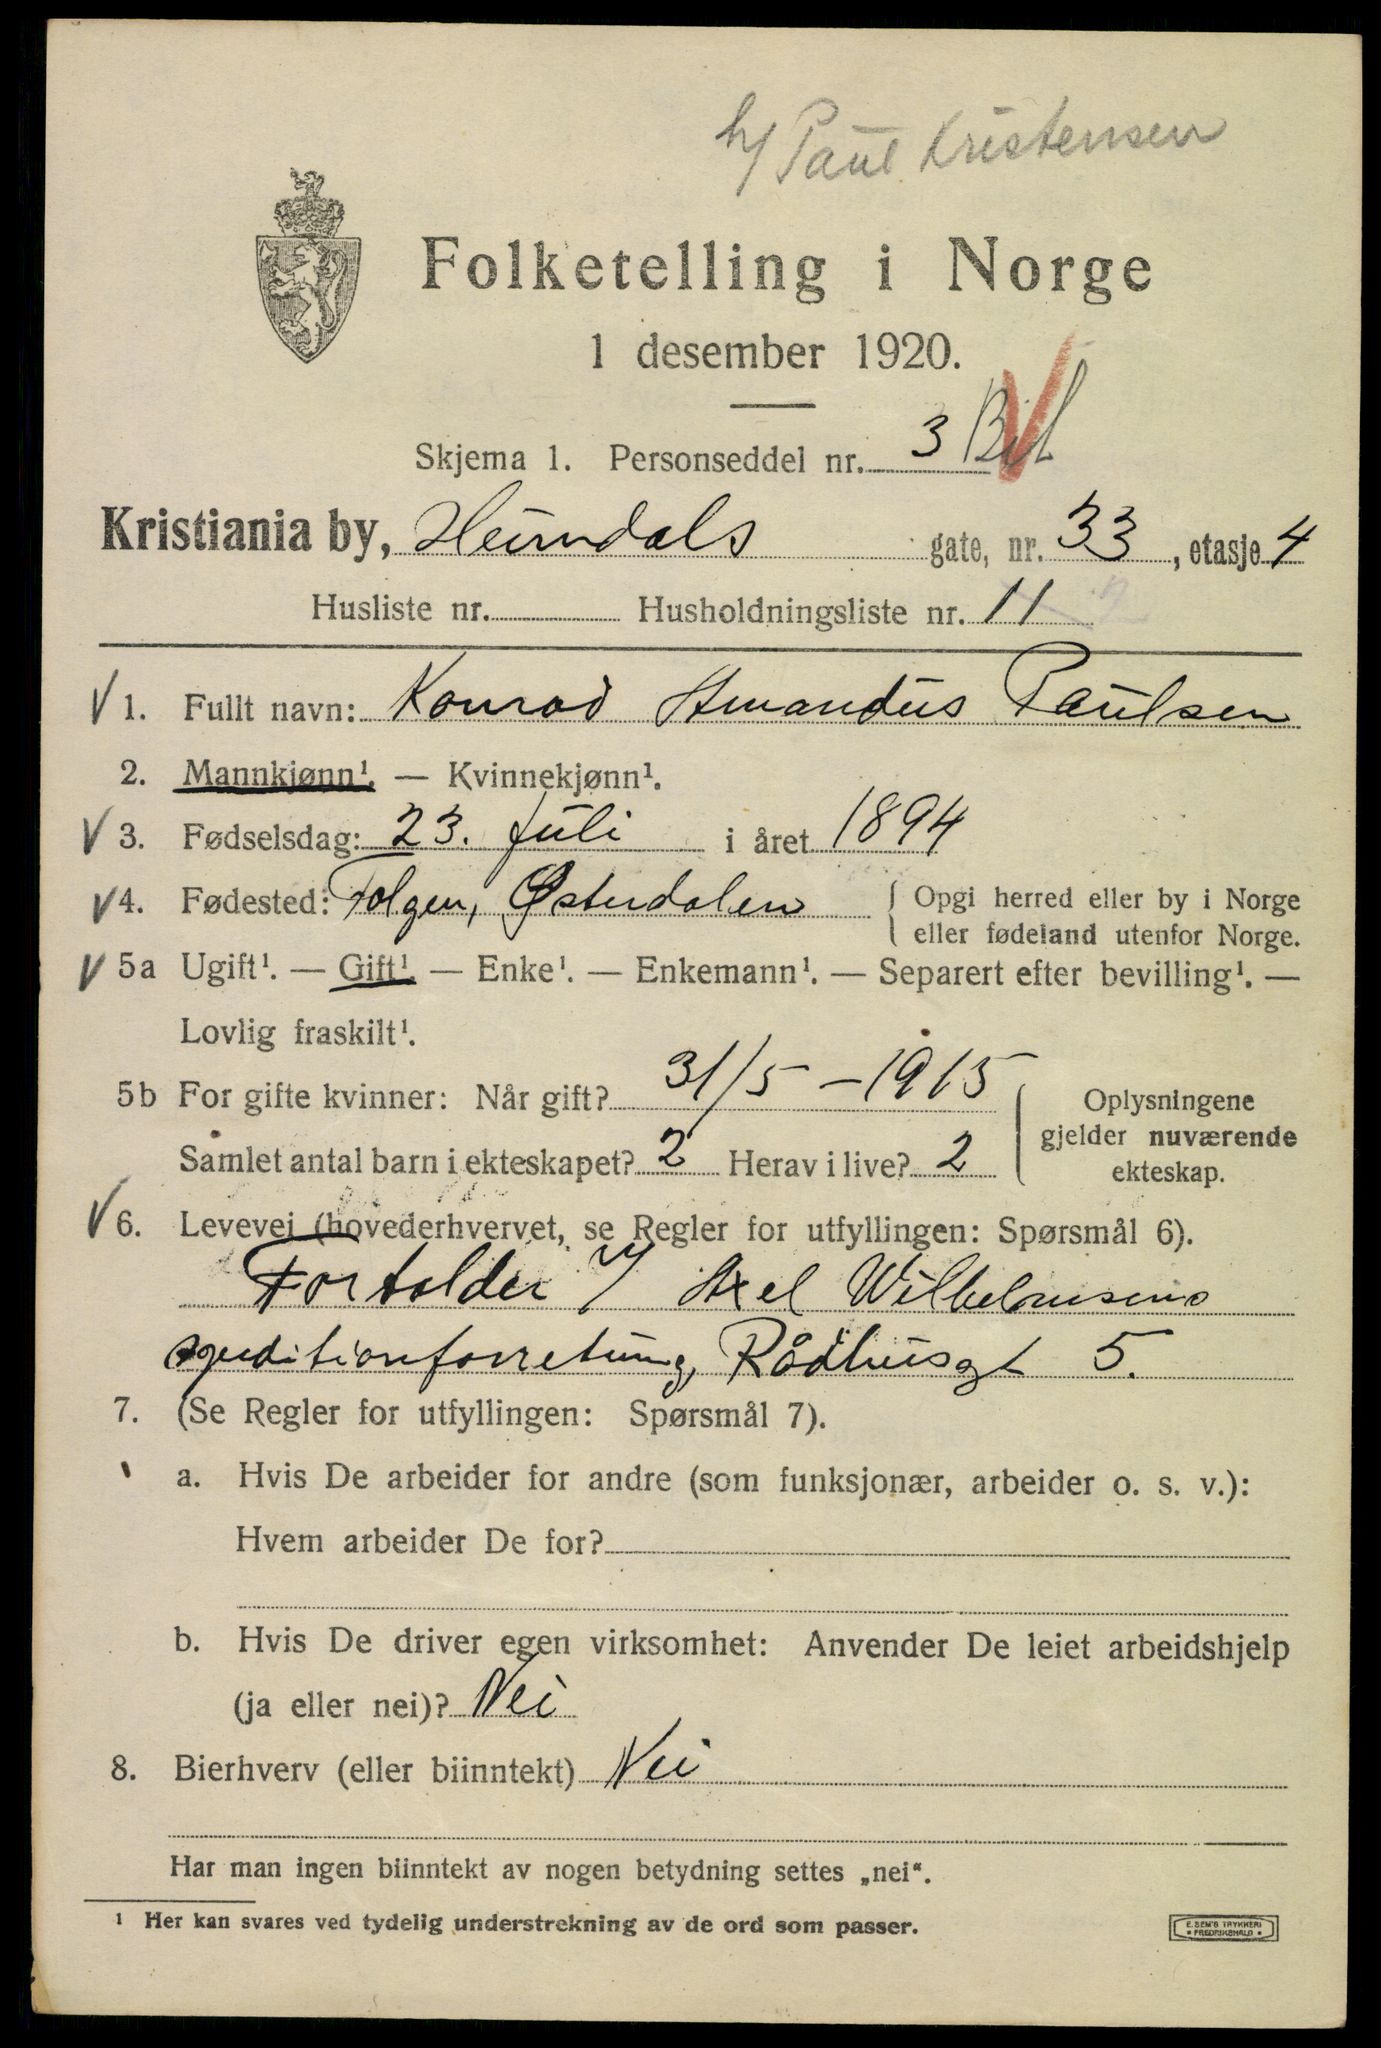 h/ Paul Kristensen
Folketelling i Norge
1 desember 1920.
Skjema 1. Personseddel nr. 3
Kristiania by, Heimdals gate, nr. 33, etasje 4
Husliste nr. Husholdningsliste nr. 11
1. Fullt navn: Konrad Amandus Paulsen
2. Mannkjønn¹. — Kvinnekjønn¹.
3. Fødselsdag: 23. juli i året 1894
4. Fødested: Tolgen, Østerdalen { Opgi herred eller by i Norge
eller fødeland utenfor Norge.
5a Ugift¹. — Gift¹ — Enke¹. — Enkemann¹. — Separert efter bevilling¹. —
Lovlig fraskilt¹.
5b For gifte kvinner: Når gift? 31/5 - 1915
Samlet antal barn i ekteskapet? 2 Herav i live? 2
Oplysningene
gjelder nuværende
ekteskap.
6. Levevei (hovederhvervet, se Regler for utfyllingen: Spørsmål 6).
Fortolder i/ Axel Wilhelmsens
speditionforretning, Rådhusgt 5.
7. (Se Regler for utfyllingen: Spørsmål 7).
a. Hvis De arbeider for andre (som funksjonær, arbeider o. s. v.):
Hvem arbeider De for?
b. Hvis De driver egen virksomhet: Anvender De leiet arbeidshjelp
(ja eller nei)? Nei
8. Bierhverv (eller biinntekt) Nei
Har man ingen biinntekt av nogen betydning settes „nei“.
¹ Her kan svares ved tydelig understrekning av de ord som passer.
E. SEM'S TRYKKERI
* FREDRIKSHALD *